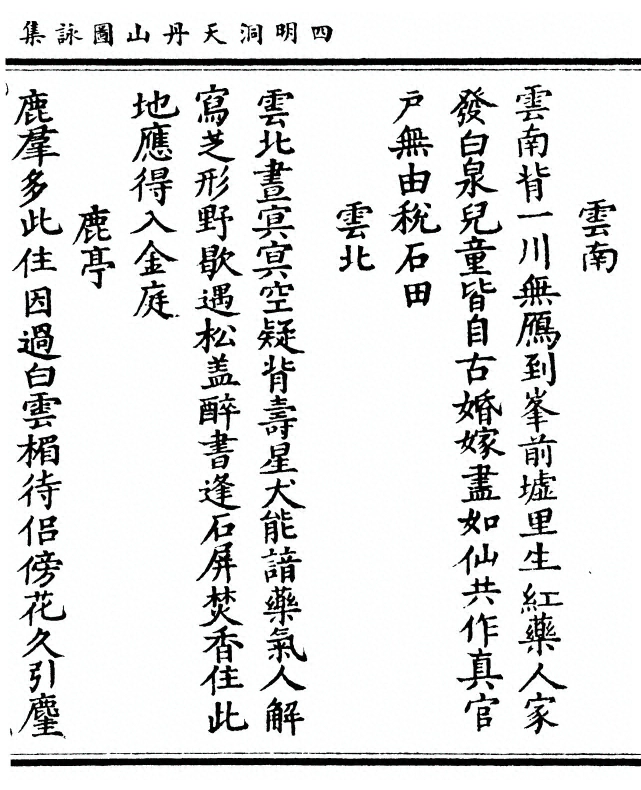 四明洞天丹山圖詠集
雲南
雲南背一川無鴈到峯前墟里生紅藥人家
發白泉兒童皆自古婚嫁盡如仙共作真官
戶無由稅石田
雲北
雲北晝冥冥空疑背壽星犬能諳藥氣人解
寫芝形野歇遇松盖醉書逢石屏焚香住此
地應得入金庭
鹿亭
鹿羣多此住因過白雲楣待侶傍花久引麈